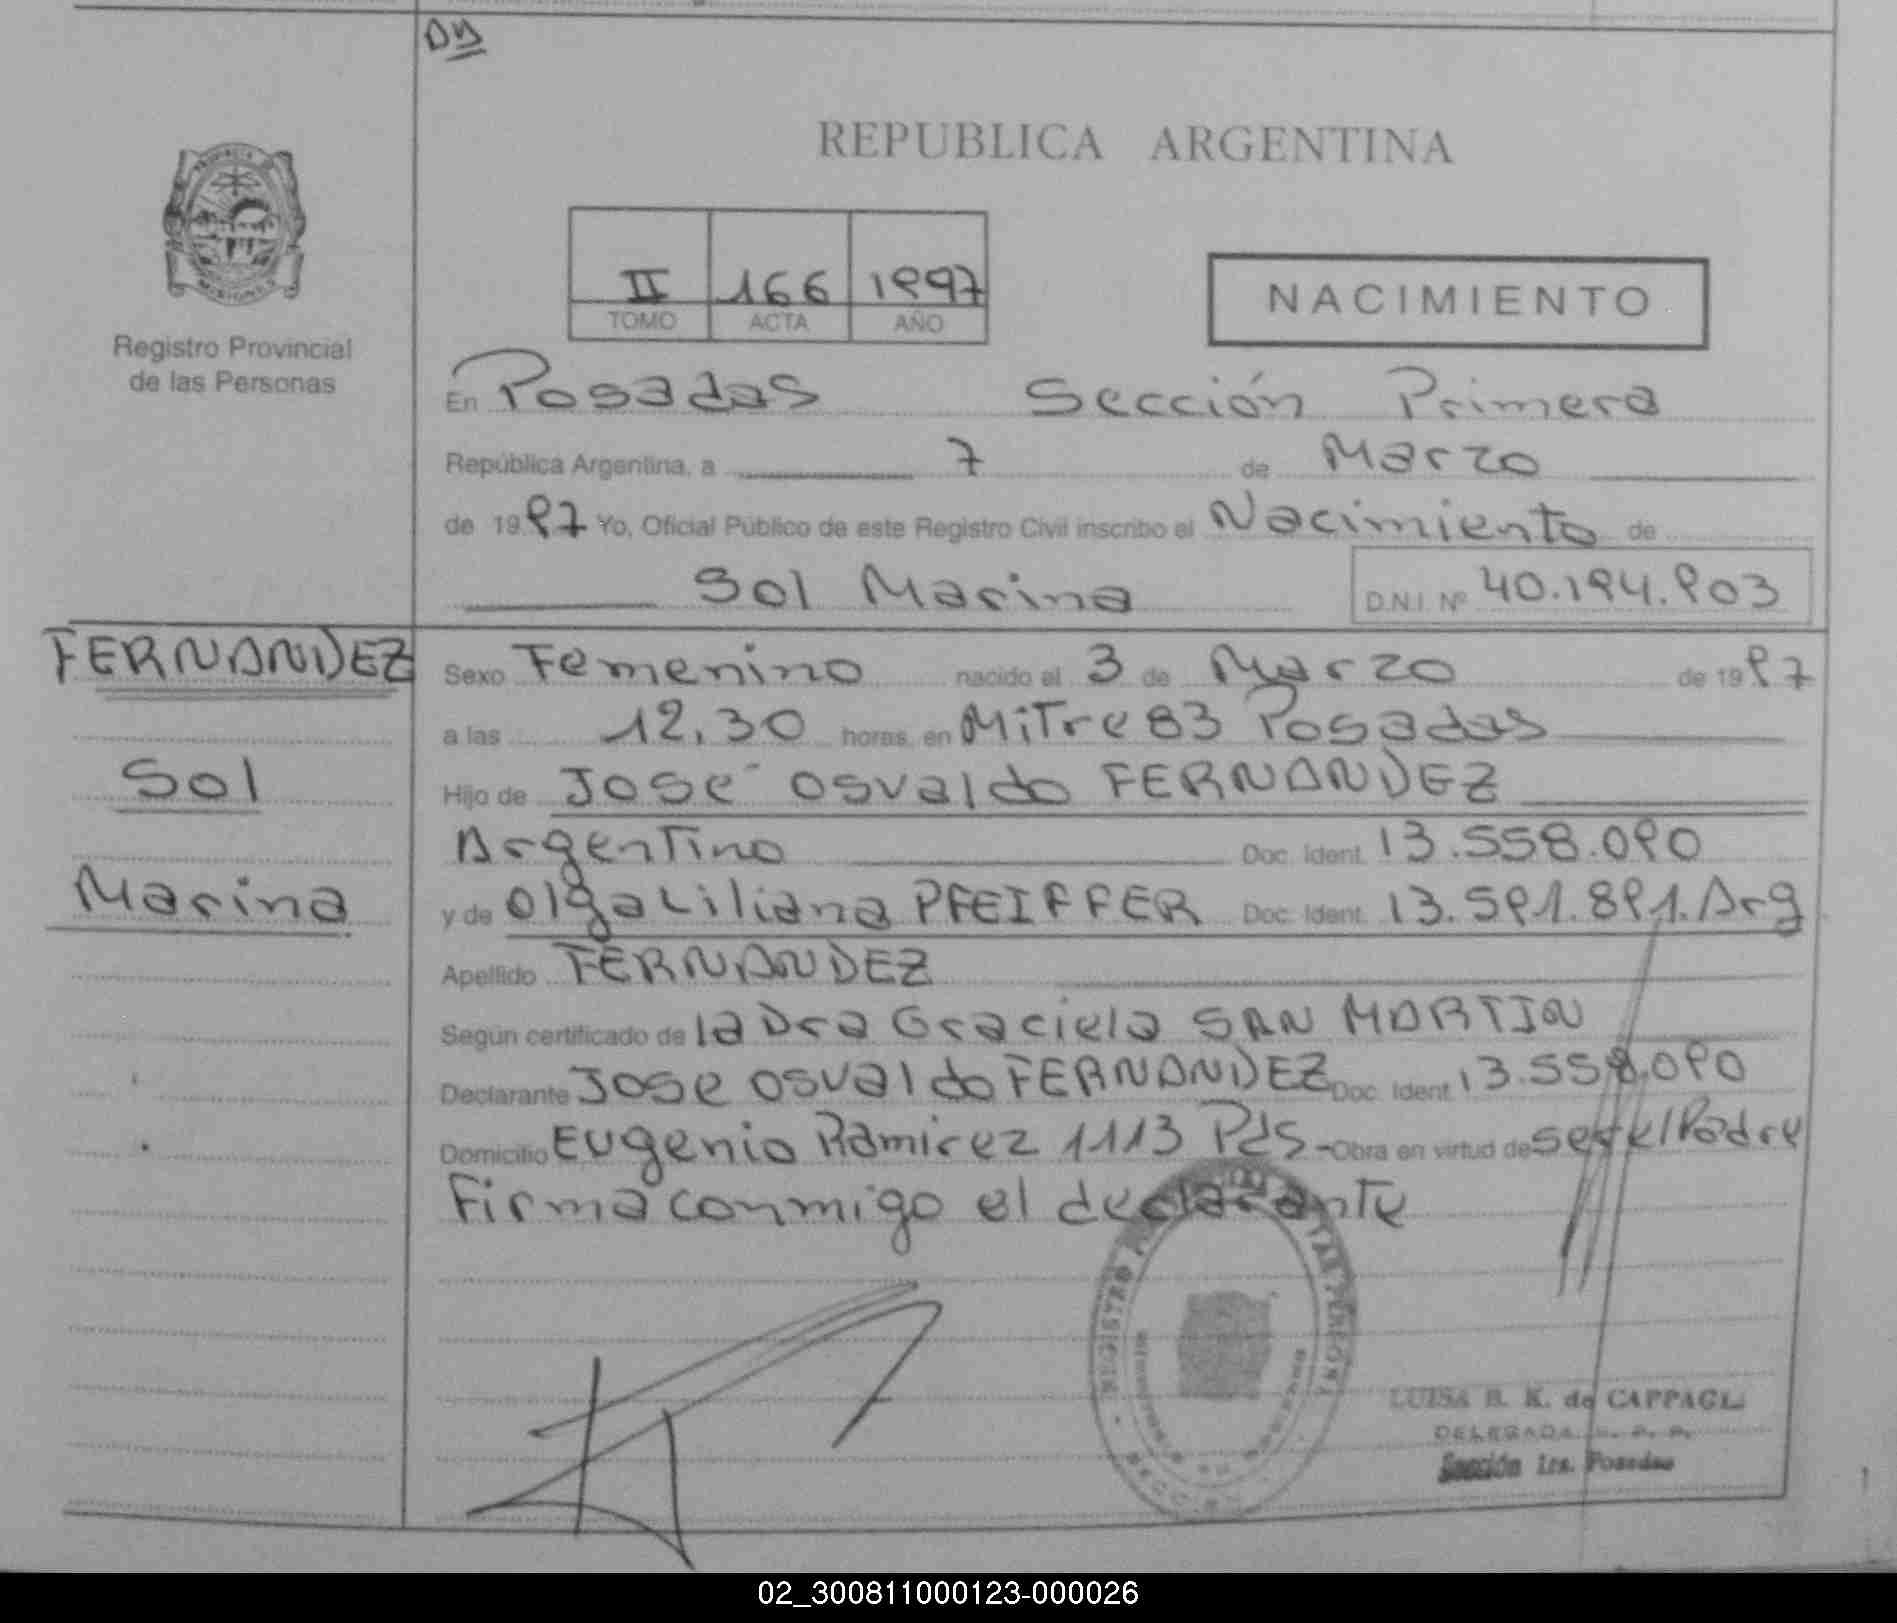 DD
REPUBLICA ARGENTINA
PROVINCIA
MISIONES
Registro Provincial
de las Personas
II 166 1997
TOMO ACTA AÑO
NACIMIENTO
En Posadas Sección Primera
República Argentina, a 7 de Marzo
de 1997 Yo, Oficial Público de este Registro Civil inscribo el Nacimiento de
Sol Marina D.N.I. Nº 40.194.903
FERNANDEZ
Sol
Marina
Sexo Femenino nacido el 3 de Marzo de 1997
a las 12,30 horas, en Mitre 83 Posadas
Hijo de José Osvaldo FERNANDEZ
Argentino Doc. Ident. 13.558.090
y de Olga Liliana PFEIFFER Doc. Ident. 13.591.891. Arg
Apellido FERNANDEZ
Según certificado de la Dra Graciela SAN MARTIN
Declarante Jose Osvaldo FERNANDEZ Doc. Ident. 13.558.090
Domicilio Eugenio Ramirez 1113 Pds - Obra en virtud de ser el Padre
Firma conmigo el declarante
REGISTRO DE LAS PERSONAS
LUISA B. K. de CAPPAGLI
DELEGADA R. P. P.
Sección 1ra. Posadas
02_300811000123-000026